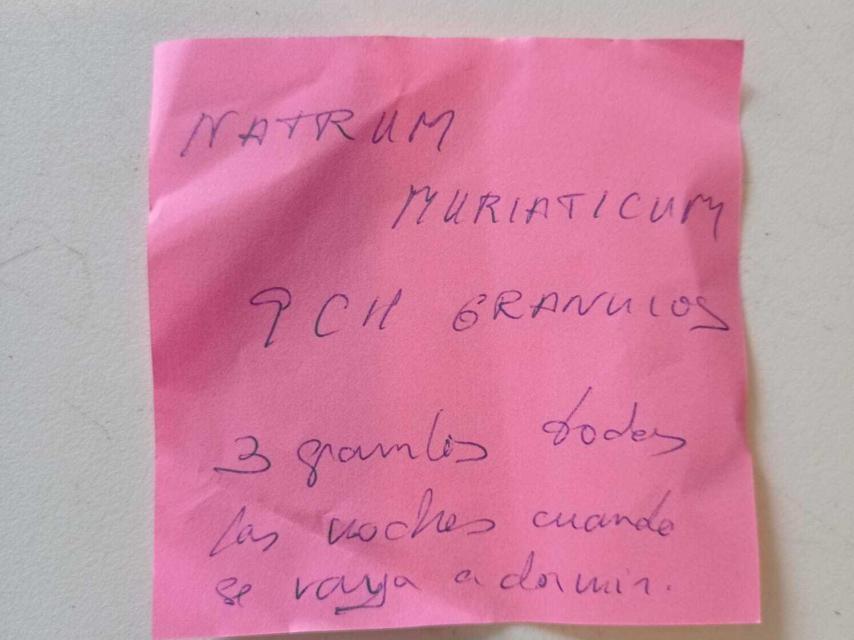 NATRUM
MURIATICUM
9 CH GRANULOS
3 granulos todas
las noches cuando
se vaya a dormir.